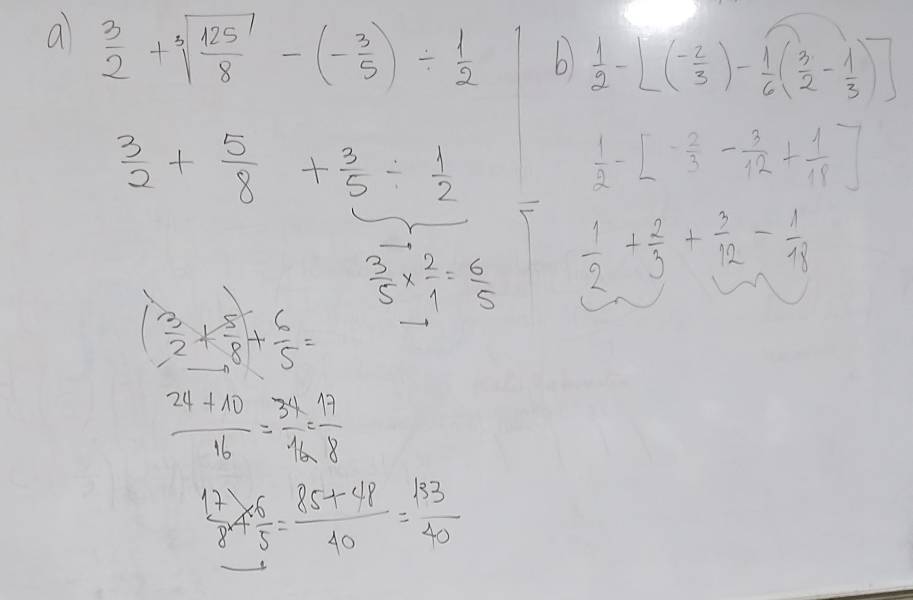 a) 3/2 + ∛(125/8) - (-3/5) ÷ 1/2
3/2 + 5/8 + 3/5 ÷ 1/2
3/5 × 2/1 = 6/5
(3/2 + 5/8) + 6/5 =
24 + 10 / 16 = 34/16 = 17/8
17/8 + 6/5 = 85 + 48 / 40 = 133/40
b) 1/2 - [(-2/3) - 1/6 (3/2 - 1/3)]
1/2 - [-2/3 - 3/12 + 1/18]
= 1/2 + 2/3 + 3/12 - 1/18